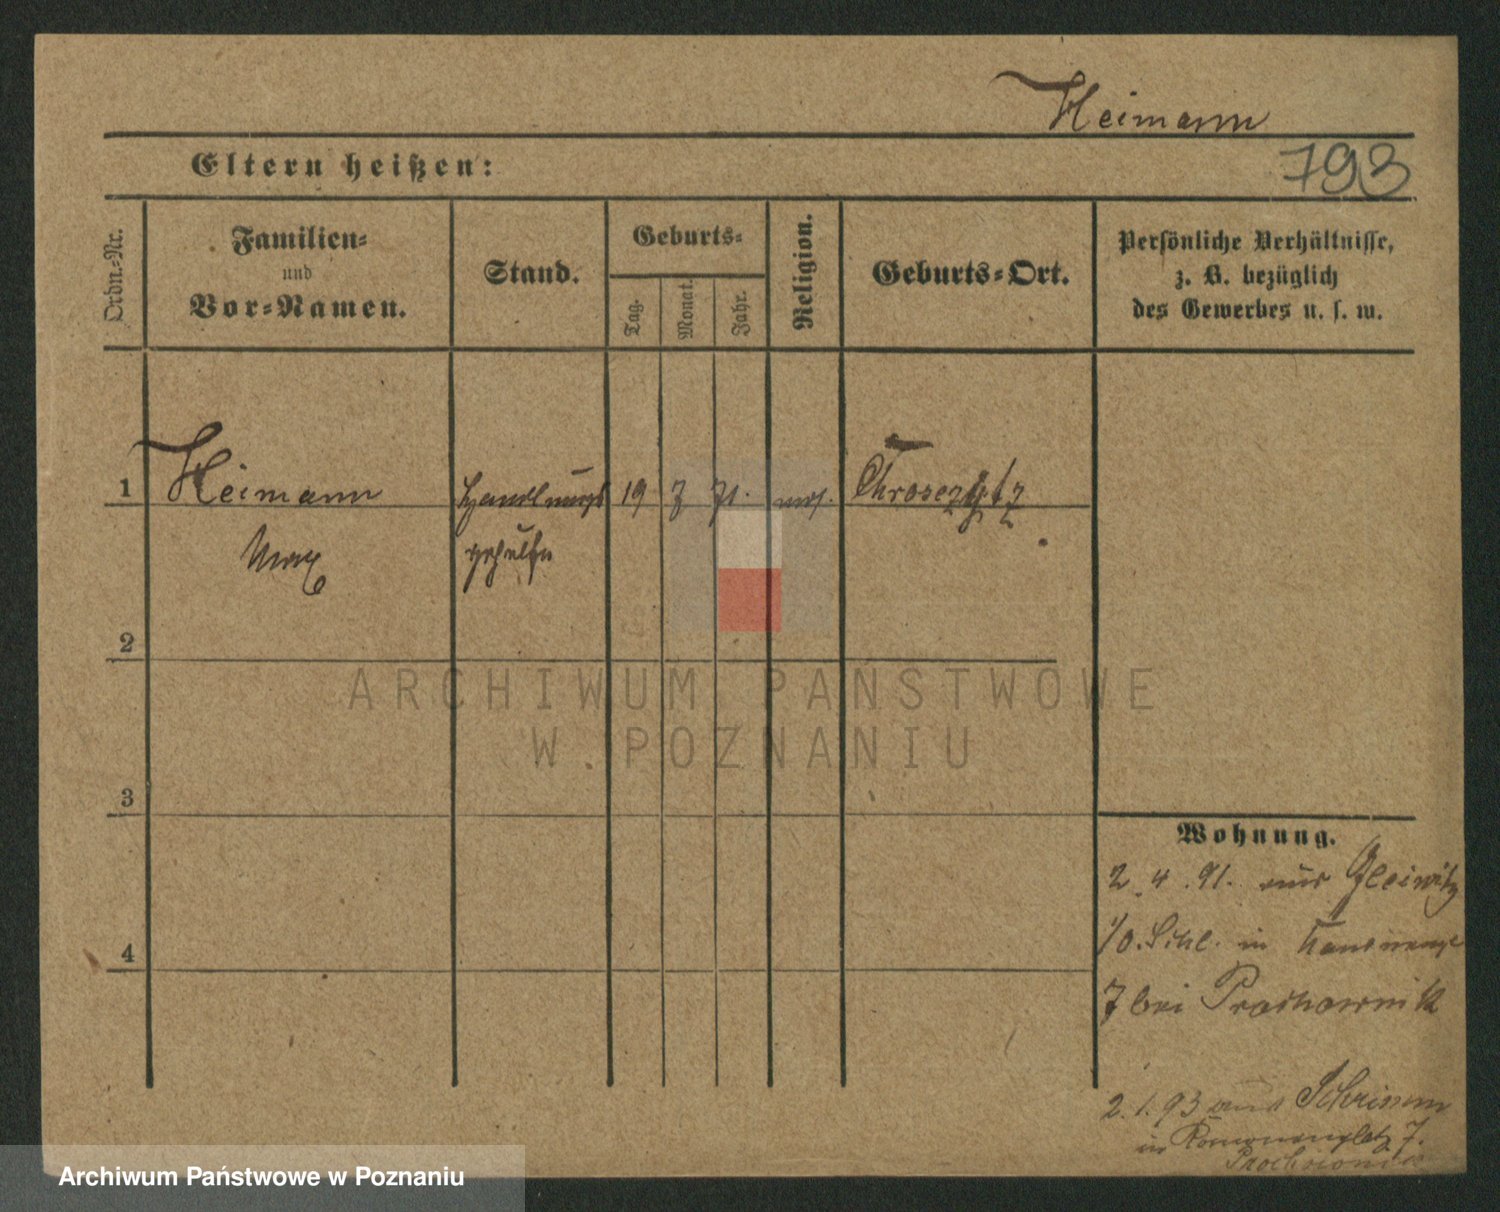 Heimann
Eltern heißen:
793
Ordn.-Nr.
Familien-
und
Vor-Namen.
Stand.
Geburts-
Tag.
Monat.
Jahr.
Religion.
Geburts-Ort.
Persönliche Verhältnisse,
z. B. bezüglich
des Gewerbes u. s. w.
1
Heimann
Handlungs
19
7
71.
mos.
Max
gehülfe
2
3
4
Wohnung.
2.4.91. aus Gleiwitz
in
7 bei Prochownik
2.1.93 aus Schrimm
in 7.
ARCHIWUM PAŃSTWOWE
W POZNANIU
Archiwum Państwowe w Poznaniu